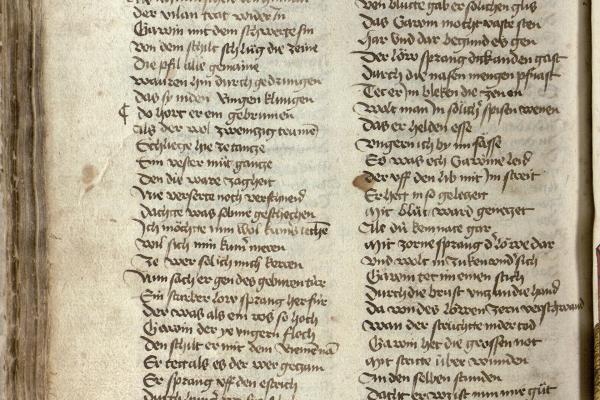 der vilan trat wider in
Gawin mit dem schwerte sin
Von dem schilt schlůg die zeine
Die pfil alle gemaine
Wauren hin durch gedrungen
das sy inden Ringen klungen
do hort er ein gebrummen
Als der wol zwenzig trumen
Schliege hie ze tancze
Sin vester můt gantze
Den die ware zagheit
Nie verserte noch verschneid
Dachte was sol mir geschechen
Ich möchte nun wol kumer iechen
Wil sich min kumer meren
Ze wer sol ich mich keren
Nun sach er gen des geburen túre
Ein starker low sprang her fúr
Der was als ein ros so hoch
Gawin der ye ungern floch
Den schilt er mit dem Riemen nã
Er tett als es der wer gezam
Er sprang vff den estrich
von blutte gab er solichen gus
Das Gawin mocht vaste sten
Har vnd dar begund es gen
Der löw sprang dik an den gast
Durch die nasen mengen pfnast
Tet er in bleken der zenen
Wolt man in solich spisen wenen
Das er helden esse
Vngern ich by im sässe
Es was och Gawine leid
Der vff den lib mit Im streit
Er hett in so geletzet
Mit blůt ward genetzet
Alle dú kemnate gar
Mit zorne sprang d löwe dar
Vnd wolt in zuken vnd sich
Gawin tet im einen stich
Durch die brust vntz an die hand
Da von des löwen zorn verschwand
Wan der struchte nider tod
Gawin het die grossen not
Mit stritte úber wunden
In den selben stunden
Dacht er was ist nun mir gůt